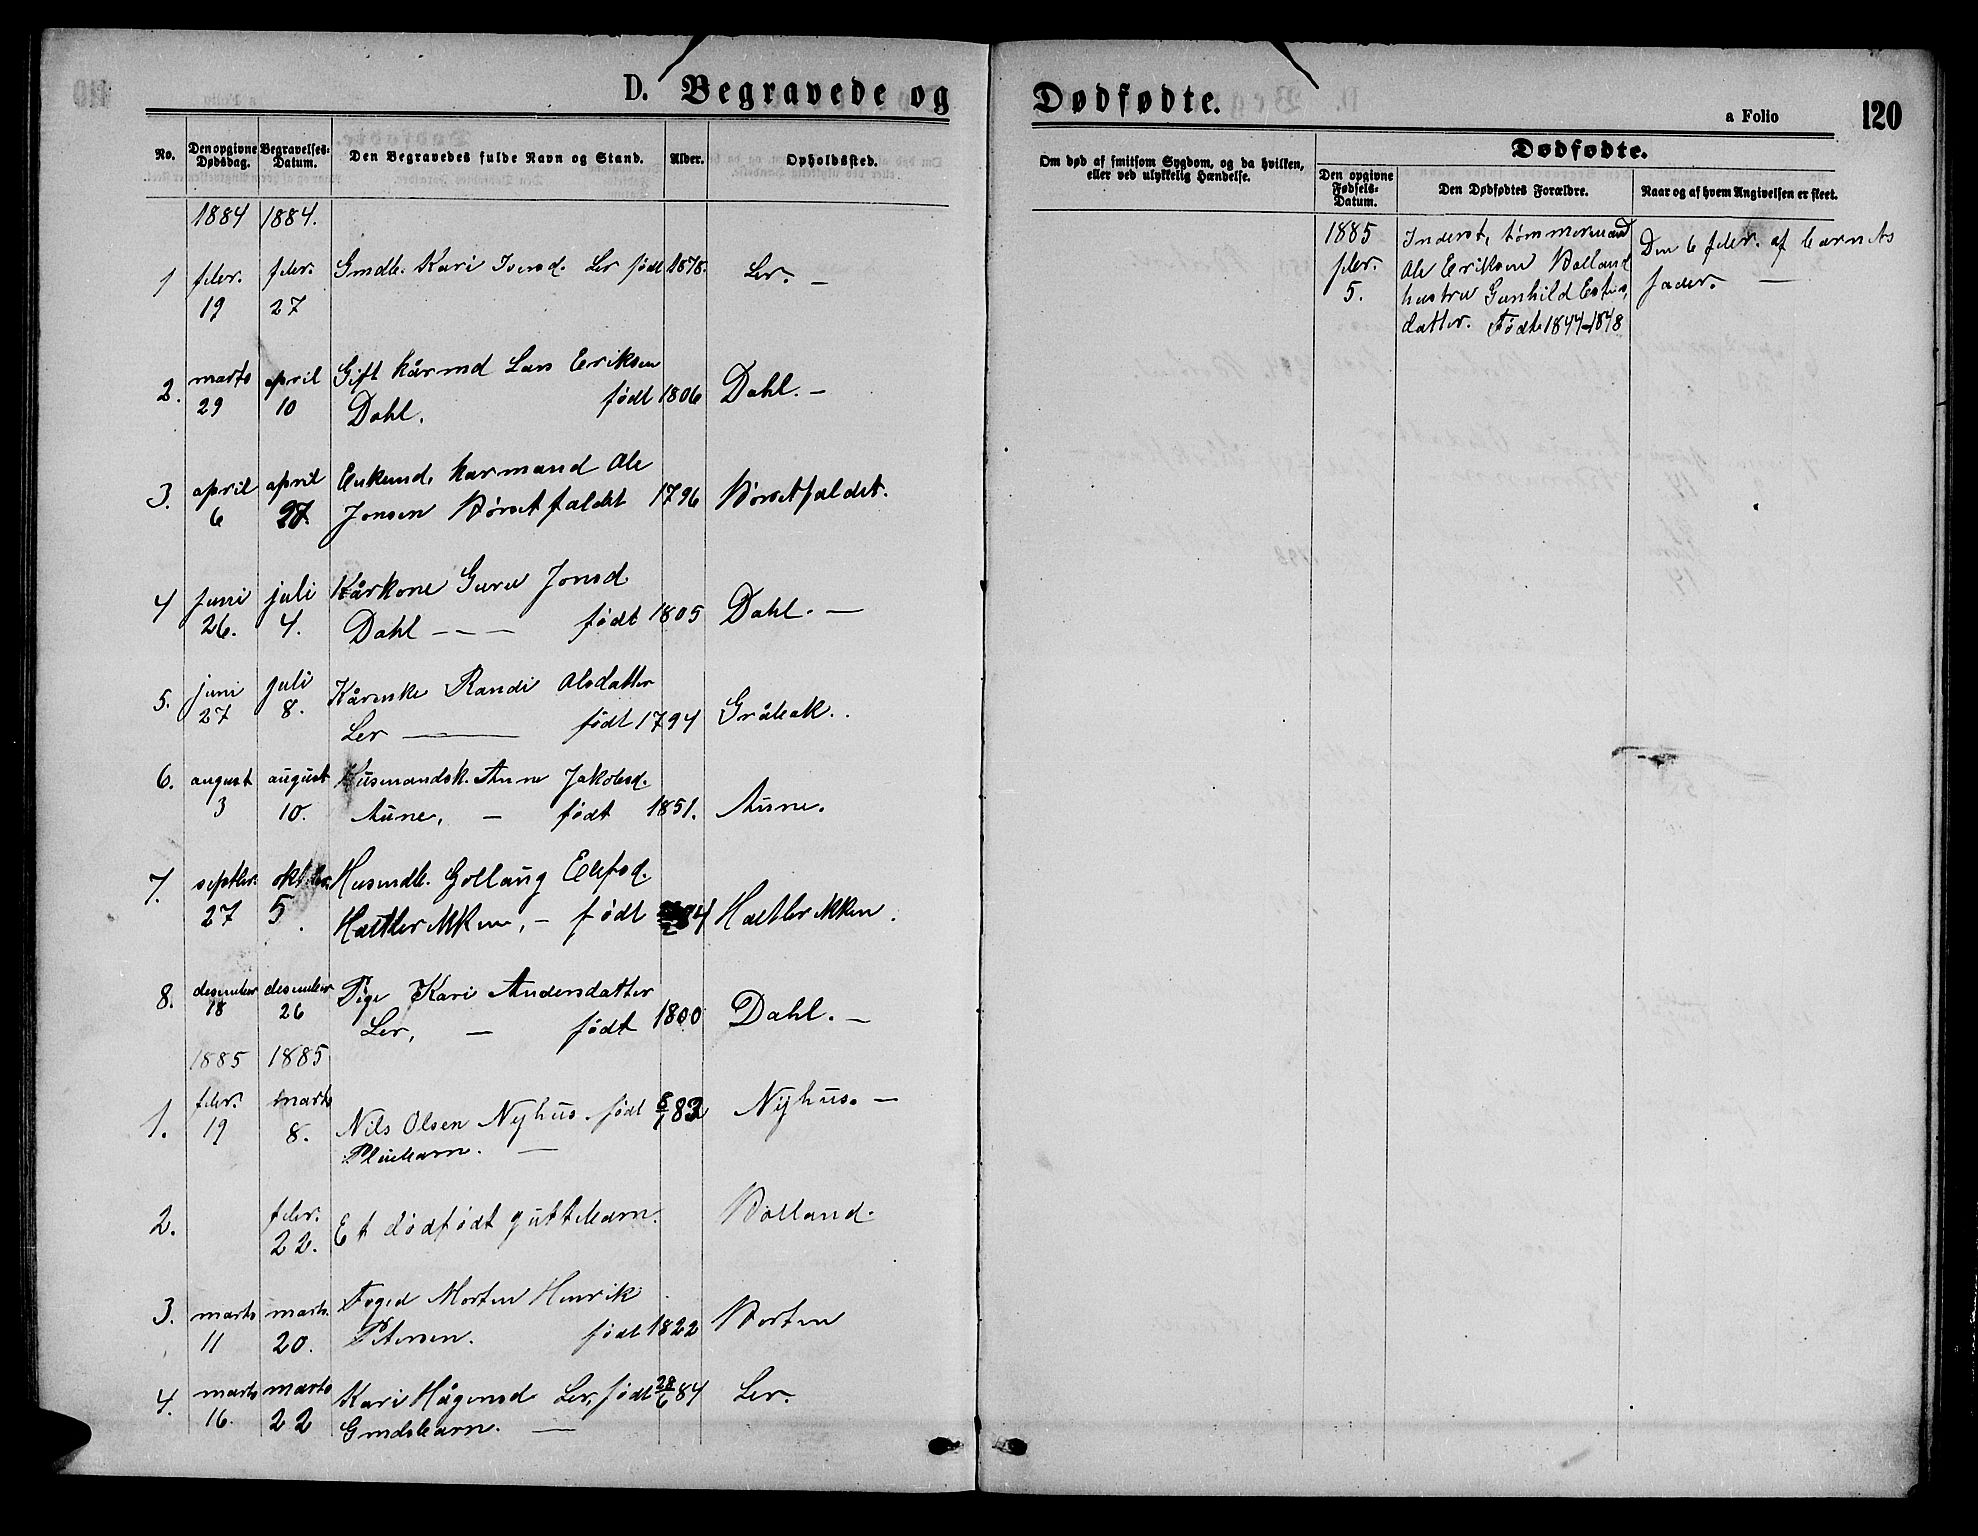 D. Begravede og Dødfødte.
a Folio 120
No. Den opgivne Dødsdag. Begravelses-Datum. Den Begravedes fulde Navn og Stand. Alder. Opholdssted.
Om død af smitsom Sygdom, og da hvilken, eller ved ulykkelig Hændelse.
Dødfødte.
Den opgivne Fødsels-Datum. Den Dødfødtes Forældre. Naar og af hvem Angivelsen er skeet.
1884 1884.
1 febr. 19 febr. 27 Gmdb. Kari Iversd. Ler født 1878. Ler. —
2. marts 29 april 10 Gift kårmd Lars Eriksen
Dahl. født 1806 Dahl. —
3. april 6 april 27. Enkemd. karmand Ole
Jonsen Børsetfaldet 1796 Børsetfaldet.
4 juni 26. juli 4. Kårkone Guru Jonsd.
Dahl — — — født 1805 Dahl. —
5. juni 27 juli 8. Kårenke Randi Olsdatter
Ler — født 1794 Gråbak.
6. august 3 august 10. Husmandsk. Anne Jakobsd.
Aune, — født 1851. Aune.
7. septbr. 27 oktbr. 5. Husmdb. Gollaug Elefsd.
født 84
8. desember 18 desember 26 Pige Kari Andersdatter
Ler, — født 1800 Dahl. —
1885 1885
1. febr. 19 marts 8. Nils Olsen Nyhus. født 83 Nyhus. —
Pleiebarn. —
2. febr. 22. Et dødfødt guttebarn. Bolland.
3. marts 11 marts 20. Foged Morten Henrik
Petersen. født 1822 Borten
4. marts 16. marts 22 Kari Hågensd. Ler, født 28/6 84 Ler.
Gmdsbarn. —
1885 febr. 5.
Inderst, tømmermand
Ole Eriksen Bolland
hustru Gunhild Estens
datter. Født 1844–1848
Den 6 febr. af barnets
fader. —